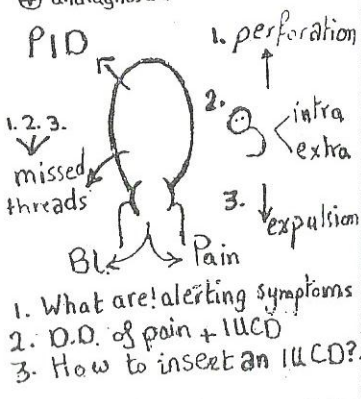 PID
1. perforation
2.
intra
extra
1. 2. 3.
missed
threads
3.
expulsion
Bl.
Pain
1. What are! alerting symptoms
2. D.D. of pain + IUCD
3. How to insert an IUCD?